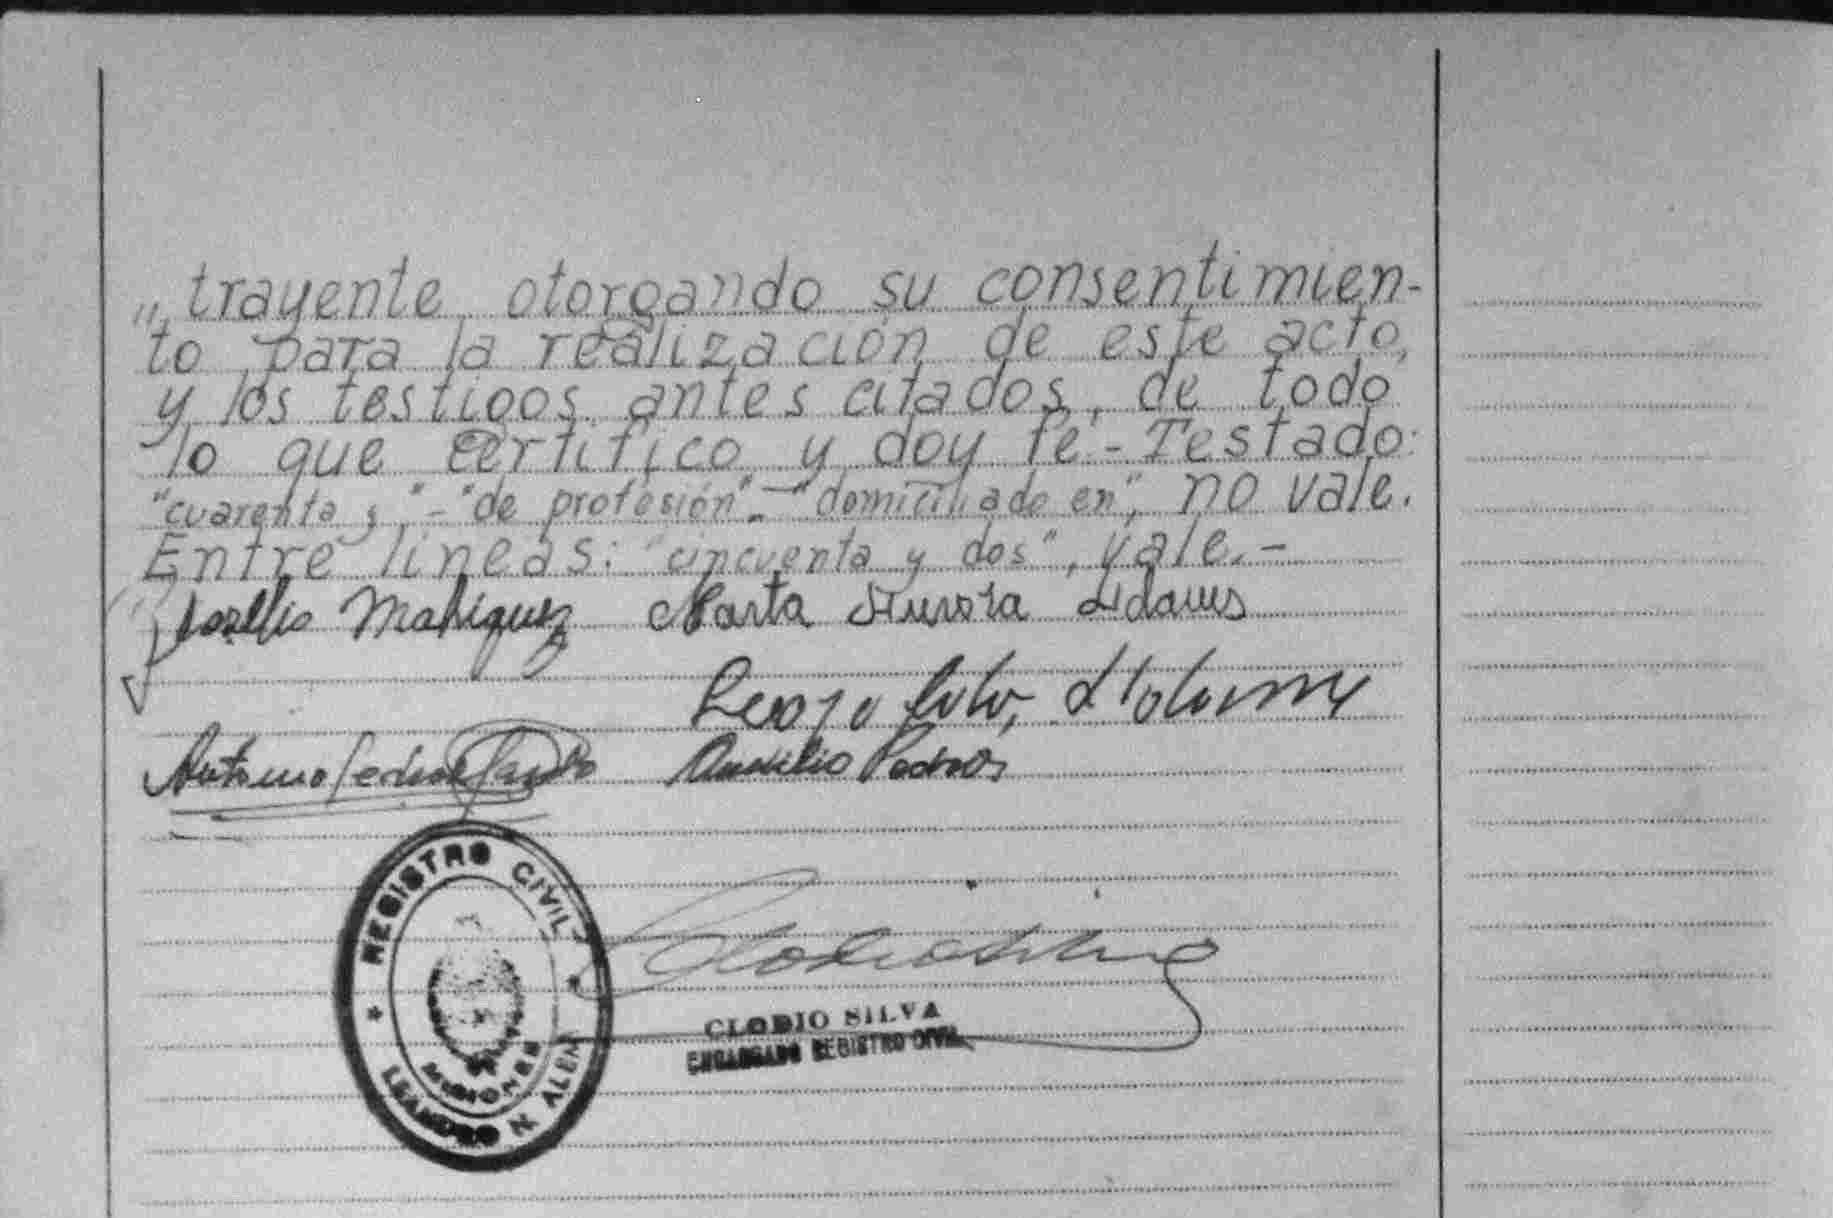 „trayente otorgando su consentimien-
to para la realización de este acto,
y los testigos antes citados, de todo
lo que certifico y doy fe.- Testado:
"cuarenta y"-"de profesión"-"domiciliado en", no vale.
Entre líneas: "cincuenta y dos", vale.-
Marta Aurora
Antonio
REGISTRO CIVIL
MISIONES
LEANDRO N. ALEM
CLODIO SILVA
ENCARGADO REGISTRO CIVIL